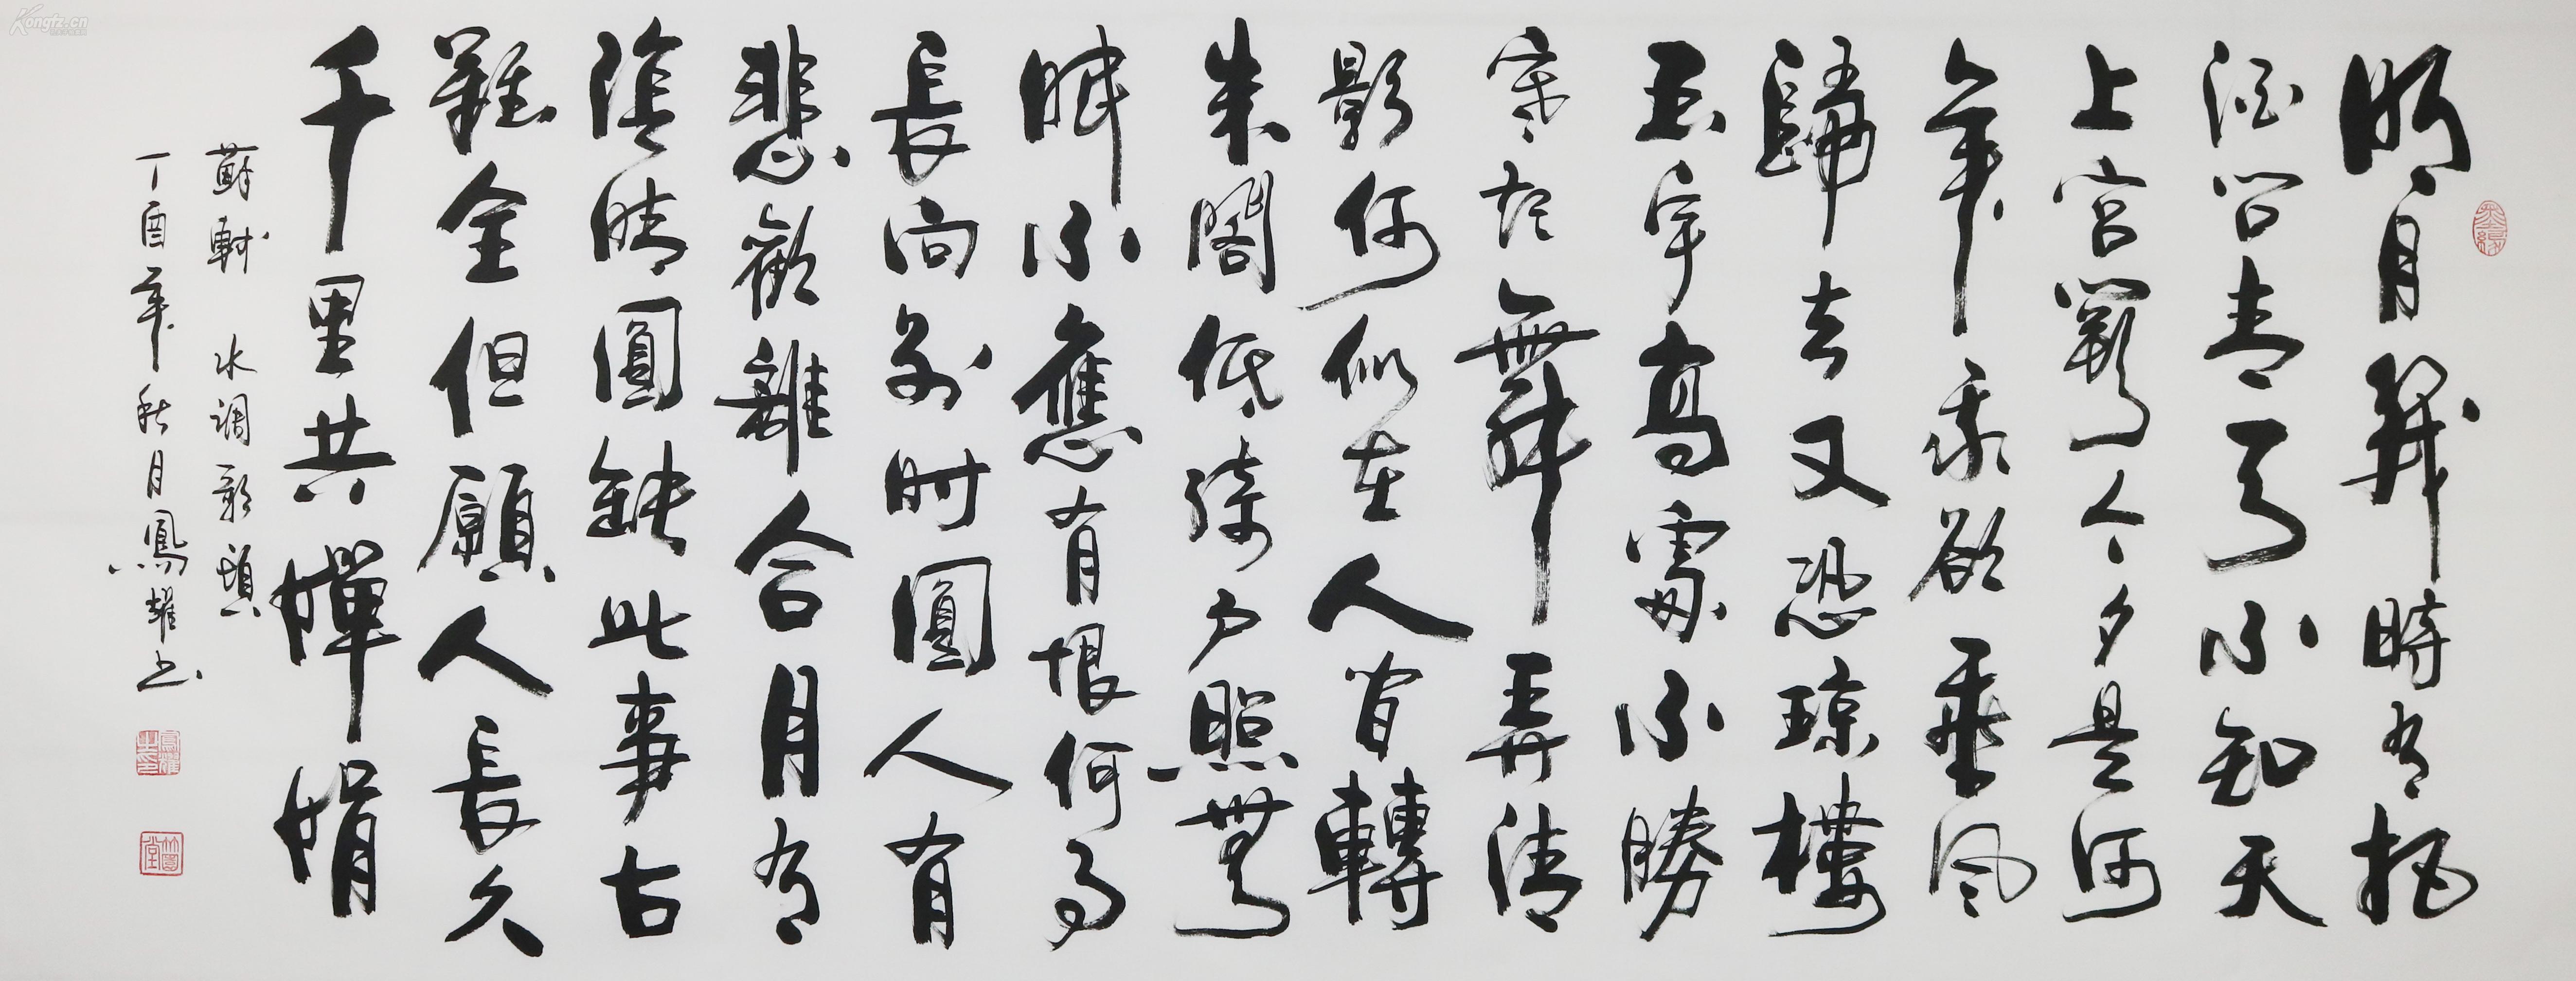 明月幾時有把
酒問青天不知天
上宮闕今夕是何
年我欲乘風
歸去又恐琼樓
玉宇高處不勝
寒起舞弄清
影何似在人間轉
朱閣低綺户照無
眠不應有恨何事
長向别時圓人有
悲歡離合月有
陰晴圓缺此事古
難全但願人長久
千里共嬋娟
蘇軾 水調歌頭
丁酉年秋月鳳耀书
墨緣
Kongfz.cn